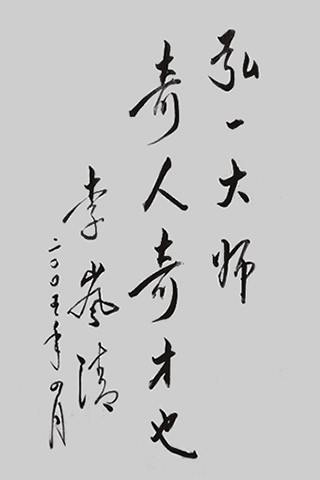 弘一大师
奇人奇才也
李岚清
二00五年四月